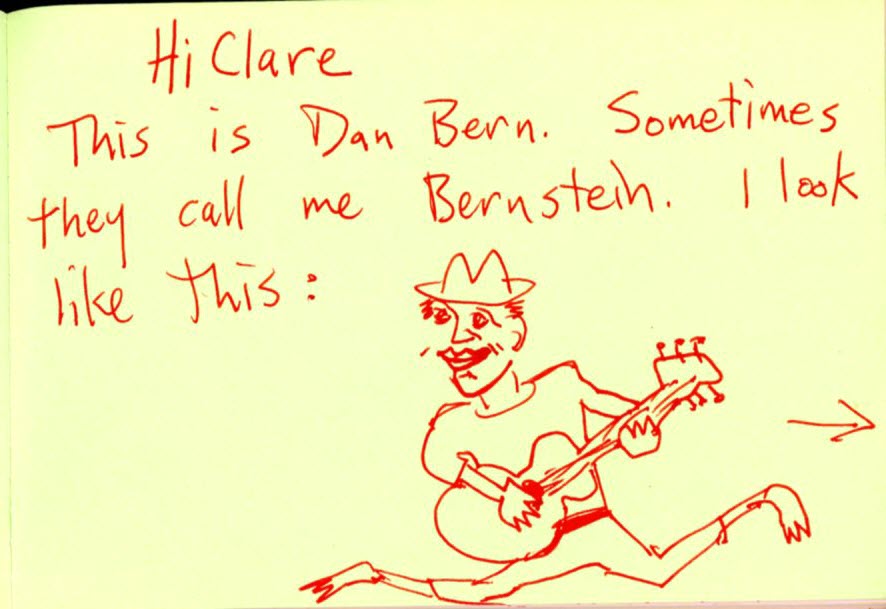 Hi Clare
This is Dan Bern. Sometimes
they call me Bernstein. I look
like this: